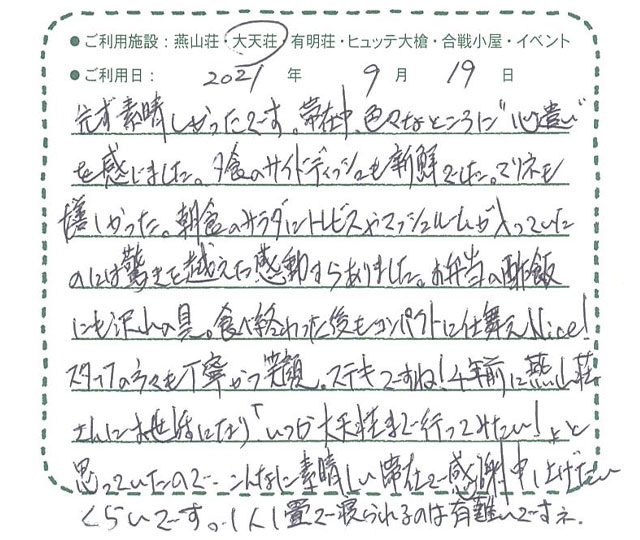 ● ご利用施設：燕山荘・大天荘・有明荘・ヒュッテ大槍・合戦小屋・イベント
● ご利用日： 2021 年 9 月 19 日
素晴しかったです。滞在中、色々なところに"心遣い"
を感じました。夕食のサイドディッシュも新鮮でした。マリネも
嬉しかった。朝食のサラダにトレビスやマッシュルームが入っていた
のには驚きを越えた感動すらありました。お弁当の酢飯
にも沢山の具。食べ終わった後もコンパクトに仕舞えNice!
スタッフの方々も丁寧かつ笑顔。ステキですね!4年前に燕山荘
さんにお世話になり「いつか大天荘まで行ってみたい!」と
思っていたので、こんなに素晴しい滞在で感謝申し上げたい
くらいです。1人1畳で寝られるのは有難いですネ。